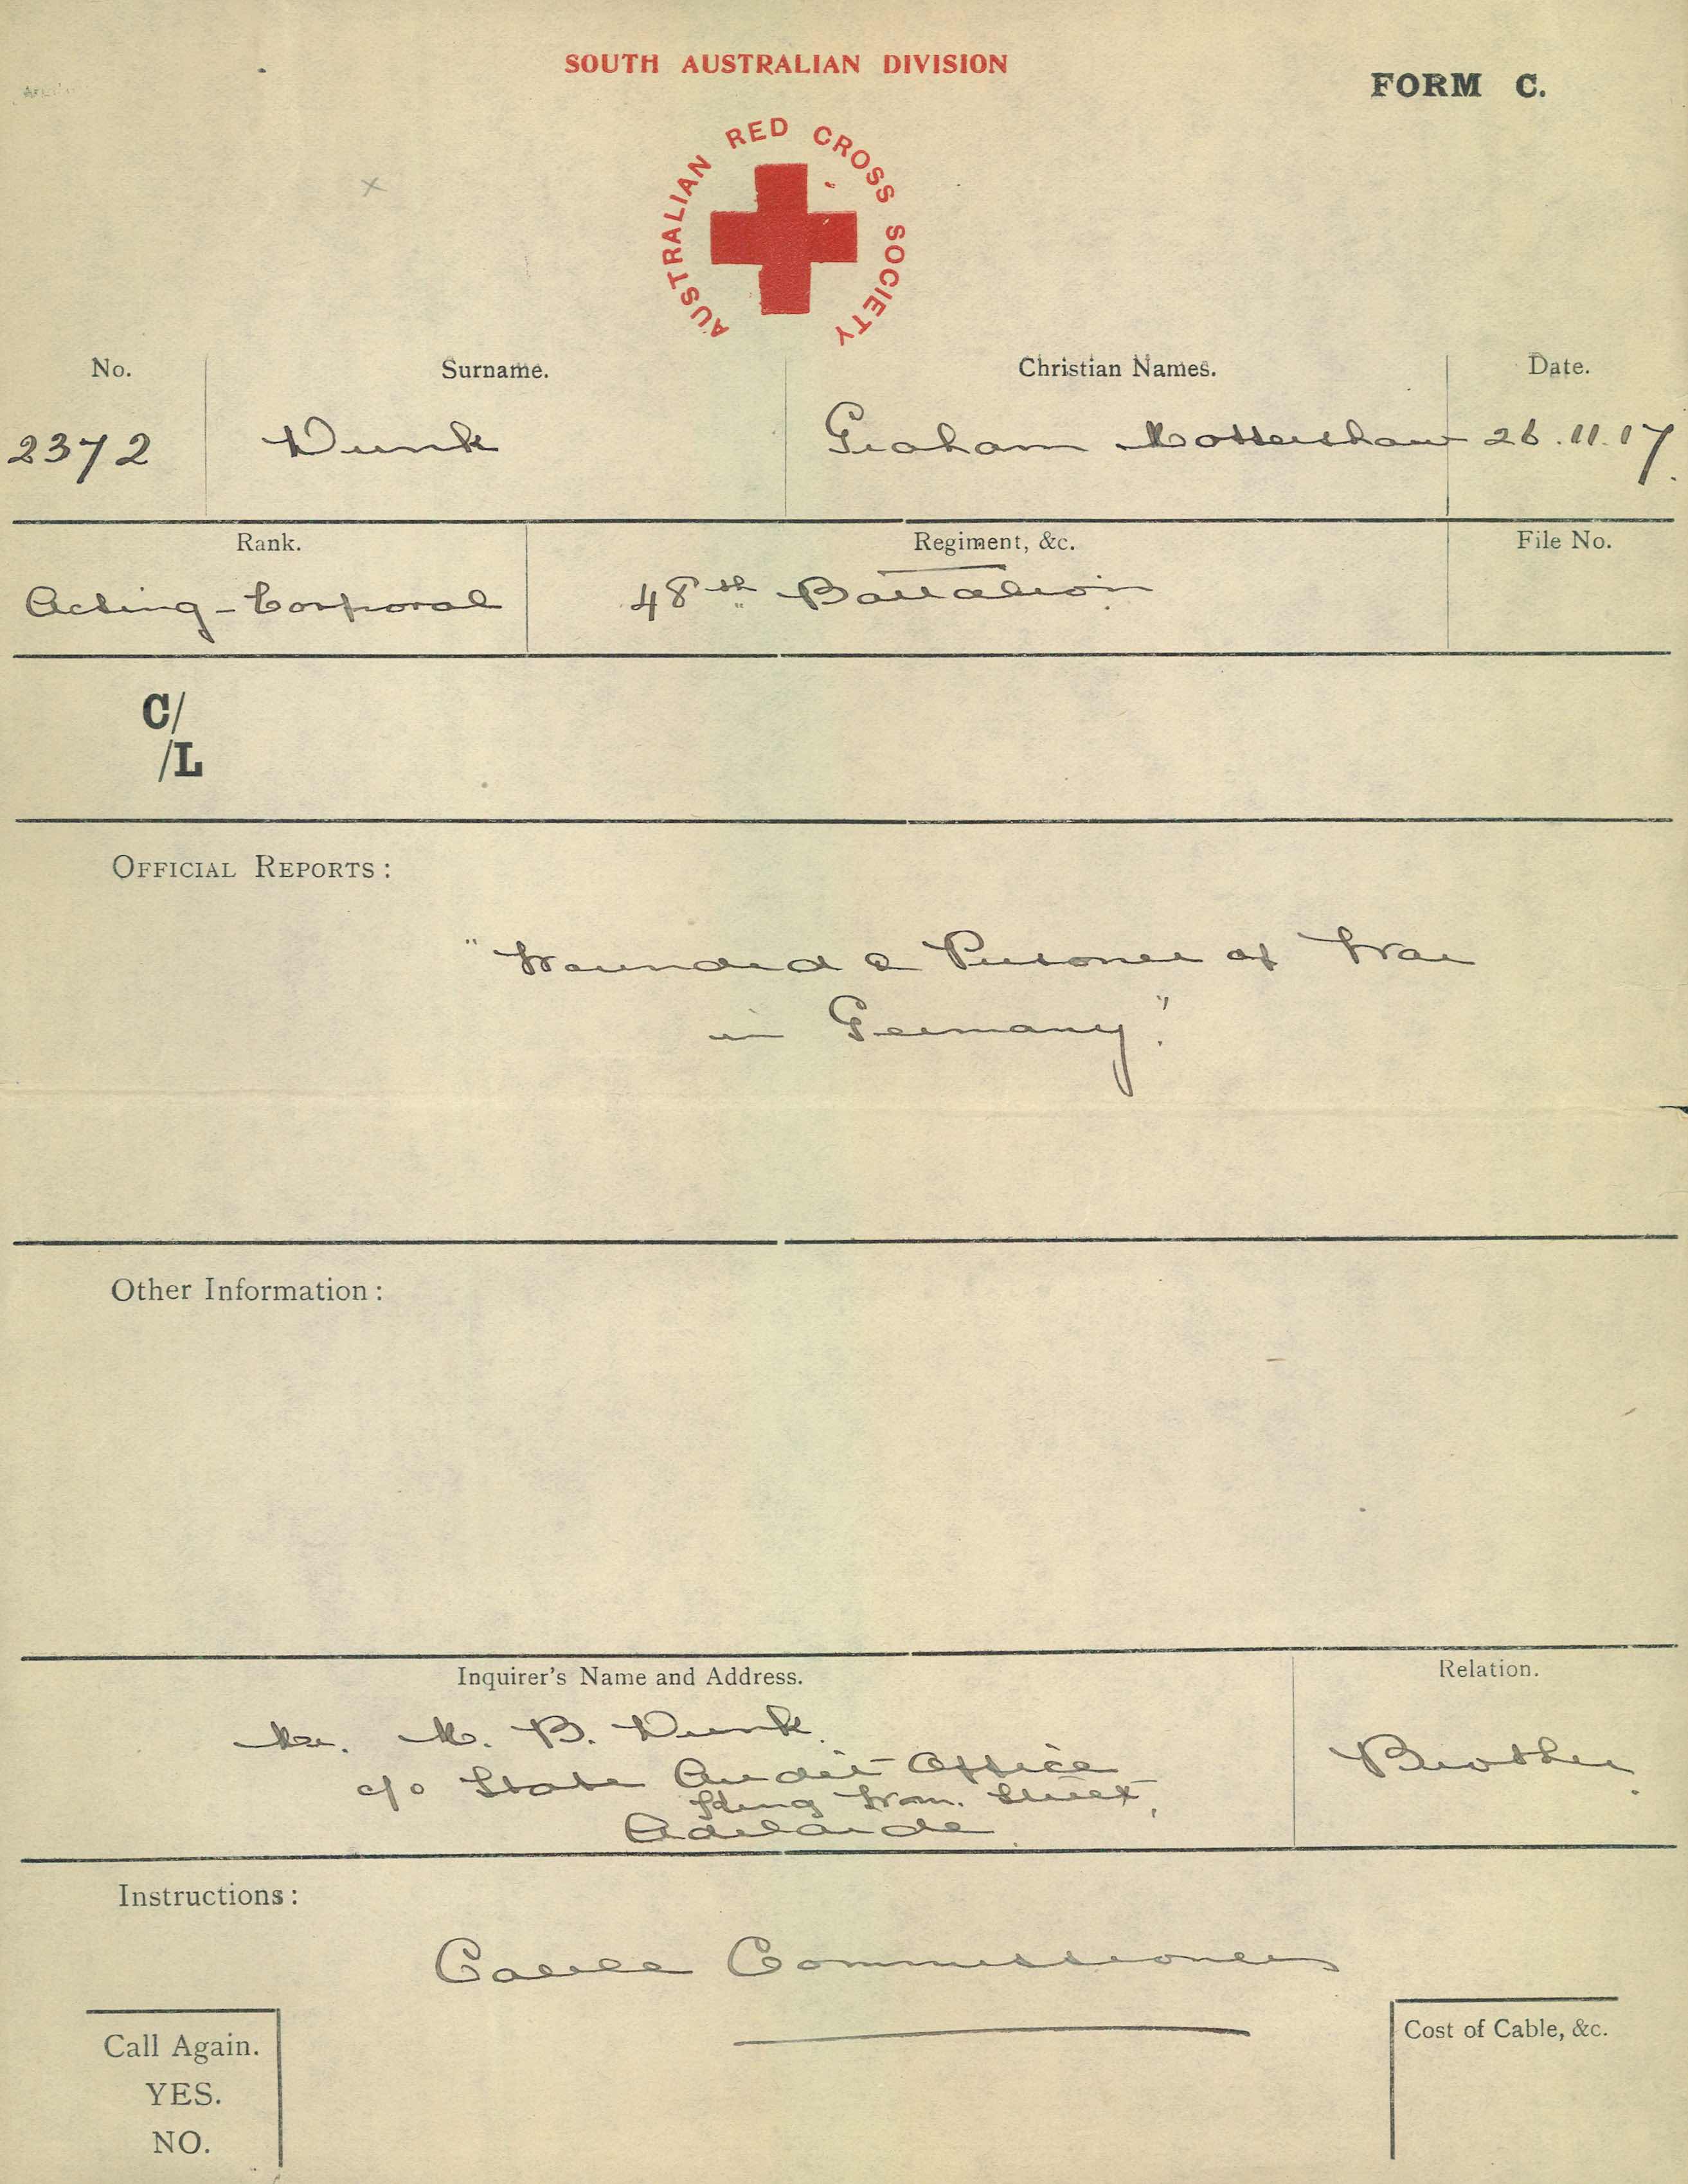 SOUTH AUSTRALIAN DIVISION
FORM C.
AUSTRALIAN RED CROSS SOCIETY
No. Surname. Christian Names. Date.
2372 Dunk Graham Mottershaw 26.11.17.
Rank. Regiment, &c. File No.
Acting-Corporal 48th Battalion
C/
/L
OFFICIAL REPORTS:
"Wounded & Prisoner of War
in Germany."
Other Information:
Inquirer's Name and Address. Relation.
Mr. M. B. Dunk.
c/o State Audit Office
King Wm. Street,
Adelaide.
Brother.
Instructions:
Cable Commissioners
Call Again.
YES.
NO.
Cost of Cable, &c.